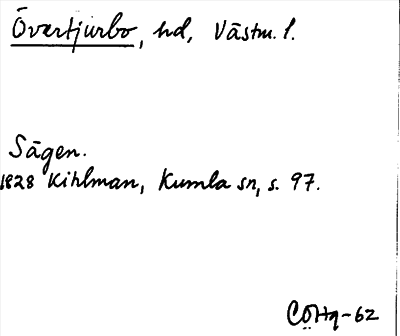 Övertjurbo, hd, Västm. l.
Sägen.
1828 Kihlman, Kumla sn, s. 97.
COHq-62